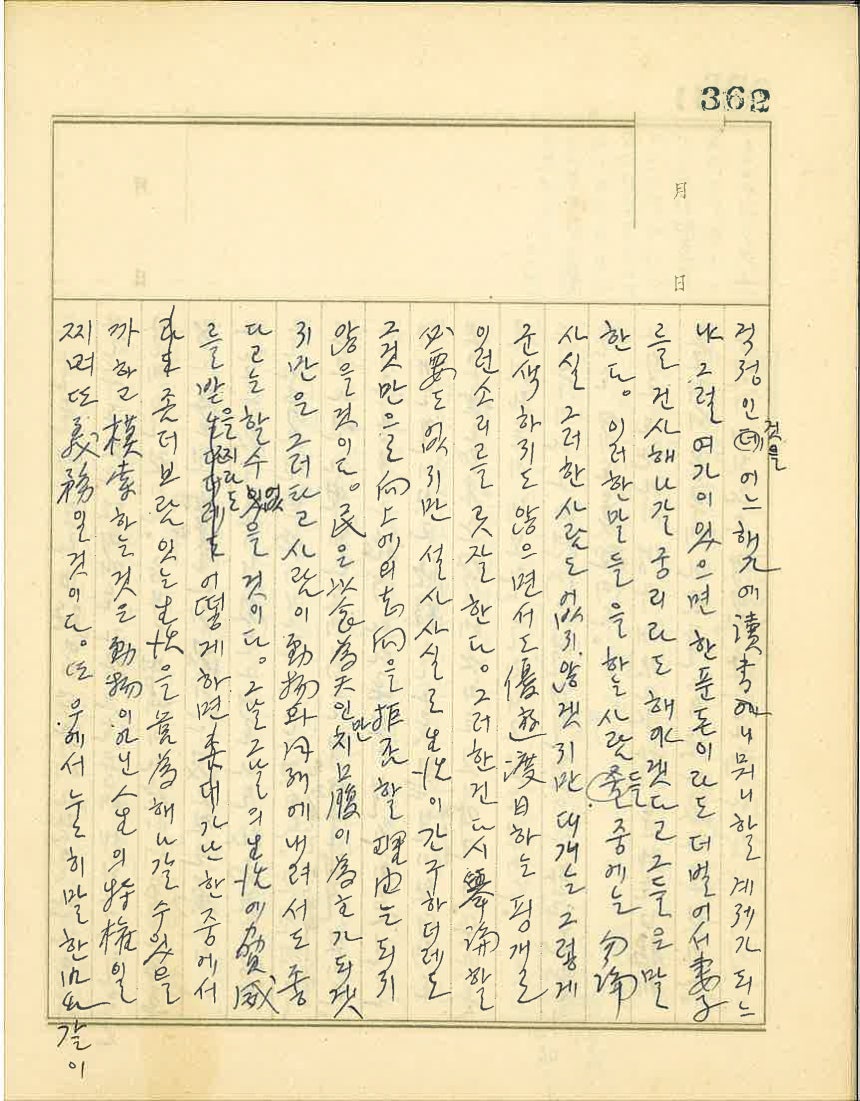 362
月
日
걱정인데 것을 어느 해가에 讀書에니 뭐니 할 계제가 되느
냐 그럴 여가이 있으면 한푼돈이라도 더 벌어서 妻子
를 건사해나갈 궁리라도 해야겠다고 그들은 말
한다. 이러한 말들을 하는 사람들 중에는 勿論
사실 그러한 사람도 없지 않겠지만 대개는 그렇게
군색하지도 않으면서도 優遊渡日하는 핑개로
이런 소리를 곳잘 한다. 그러한건 다시 擧論할
必要도 없지만 설사 사실로 生活이 간구하더래도
그것만으로 向上에의 志向을 拒否할 理由는 되지
않을 것이다. 民은 以食為天인만치 口腹이 為主가 되겟
지만은 그러타고 사람이 動物와 同列에 내려서도 좋
다고는 할수 없을 것이다. 그날 그날의 生活에 脅威
를 받을찌라도 어떻게 하면 가난한 중에서
좀더 보람있는 生活을 營為해나갈 수 있을
까 하고 模索하는 것은 動物이 아닌 人生의 特權일
찌며 또 義務일 것이다. 또 우에서 누누히 말한 바와 같이